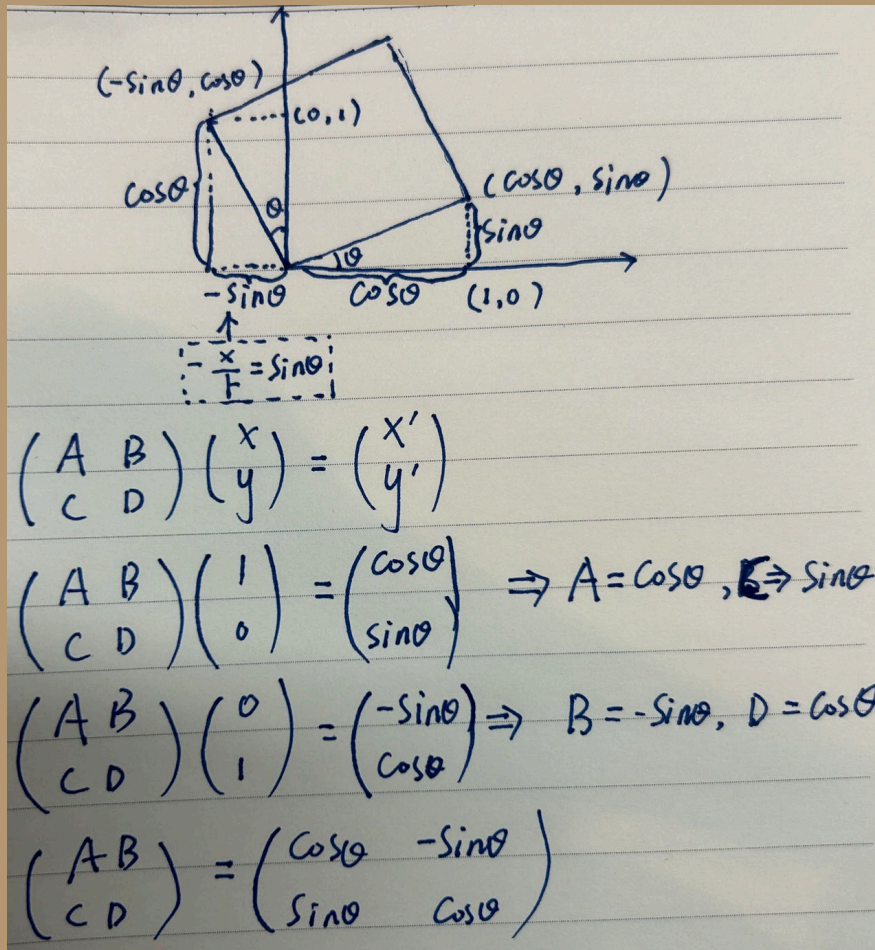 (-sinθ, cosθ)
(0,1)
cosθ
θ
(cosθ, sinθ)
sinθ
θ
-sinθ cosθ (1,0)
↑
-x/r = sinθ
(A B / C D)(x / y) = (x' / y')
(A B / C D)(1 / 0) = (cosθ / sinθ) ⇒ A = cosθ, ⇒ sinθ
(A B / C D)(0 / 1) = (-sinθ / cosθ) ⇒ B = -sinθ, D = cosθ
(A B / C D) = (cosθ -sinθ / sinθ cosθ)